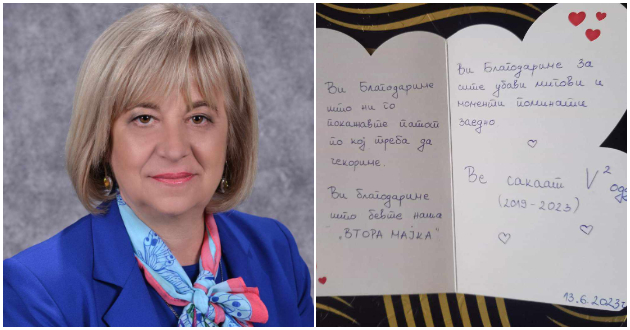 Ви Благодариме
што ни го
покажавте патот
по кој треба да
чекориме.
Ви благодариме
што бевте наша
„ВТОРА МАЈКА“
Ви Благодариме за
сите убави мигови и
моменти поминати
заедно
Ве сакаат V²
(2019-2023)
13.6.2023г